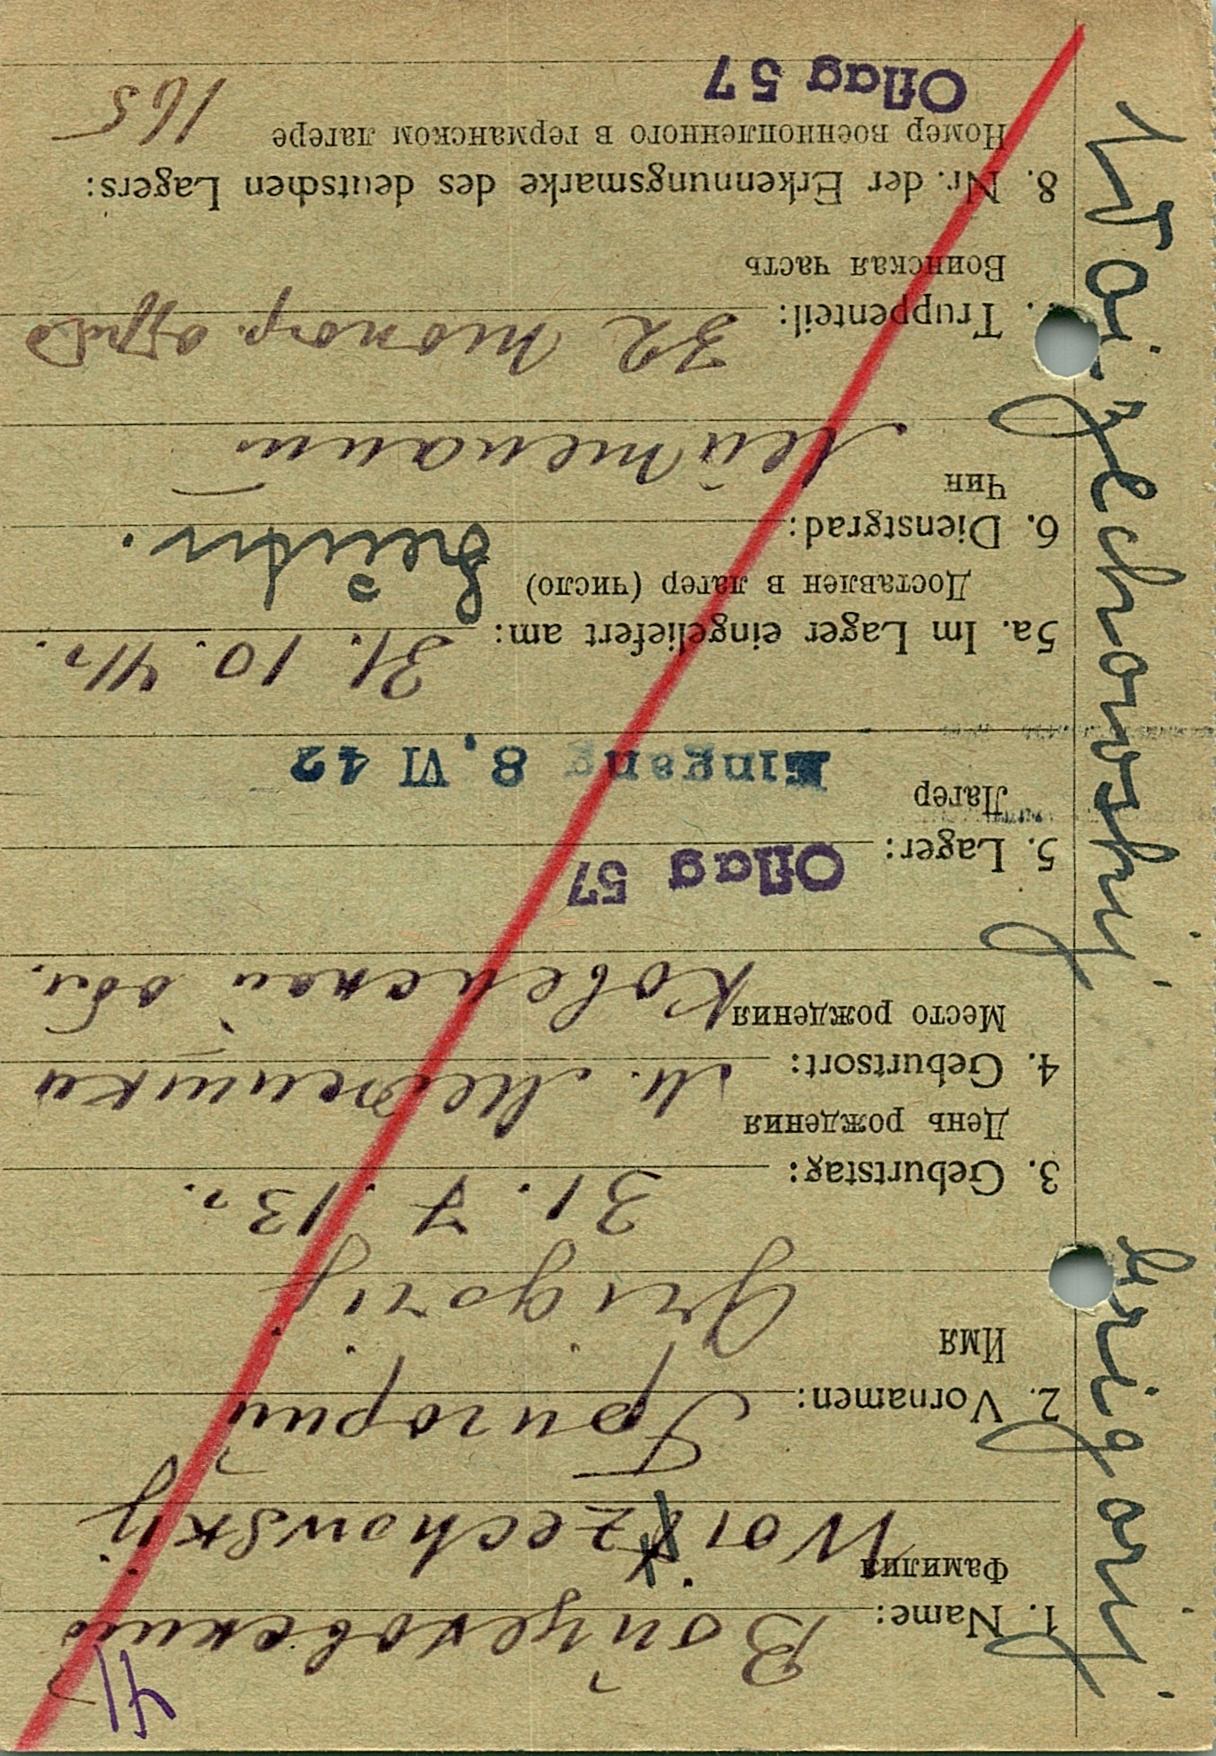 Woizechowskij Grigorij
41
1. Name: Войцеховский
Фамилия
Woizechowskij
2. Vornamen: Григорий
Имя
Grigorij
3. Geburtstag: 31. 7. 13 г.
День рождения
4. Geburtsort: м.
Место рождения Ковельской обл.
5. Lager: Oflag 57
Лагер
Eingang 8. VI 42
5a. Im Lager eingeliefert am: 31. 10. 41 г.
Доставлен в лагер (число)
6. Dienstgrad: Leutn.
Чин
лейтенант
7. Truppenteil: 32
Воинская часть
8. Nr. der Erkennungsmarke des deutschen Lagers:
Номер военнопленного в германском лагере 165
Oflag 57